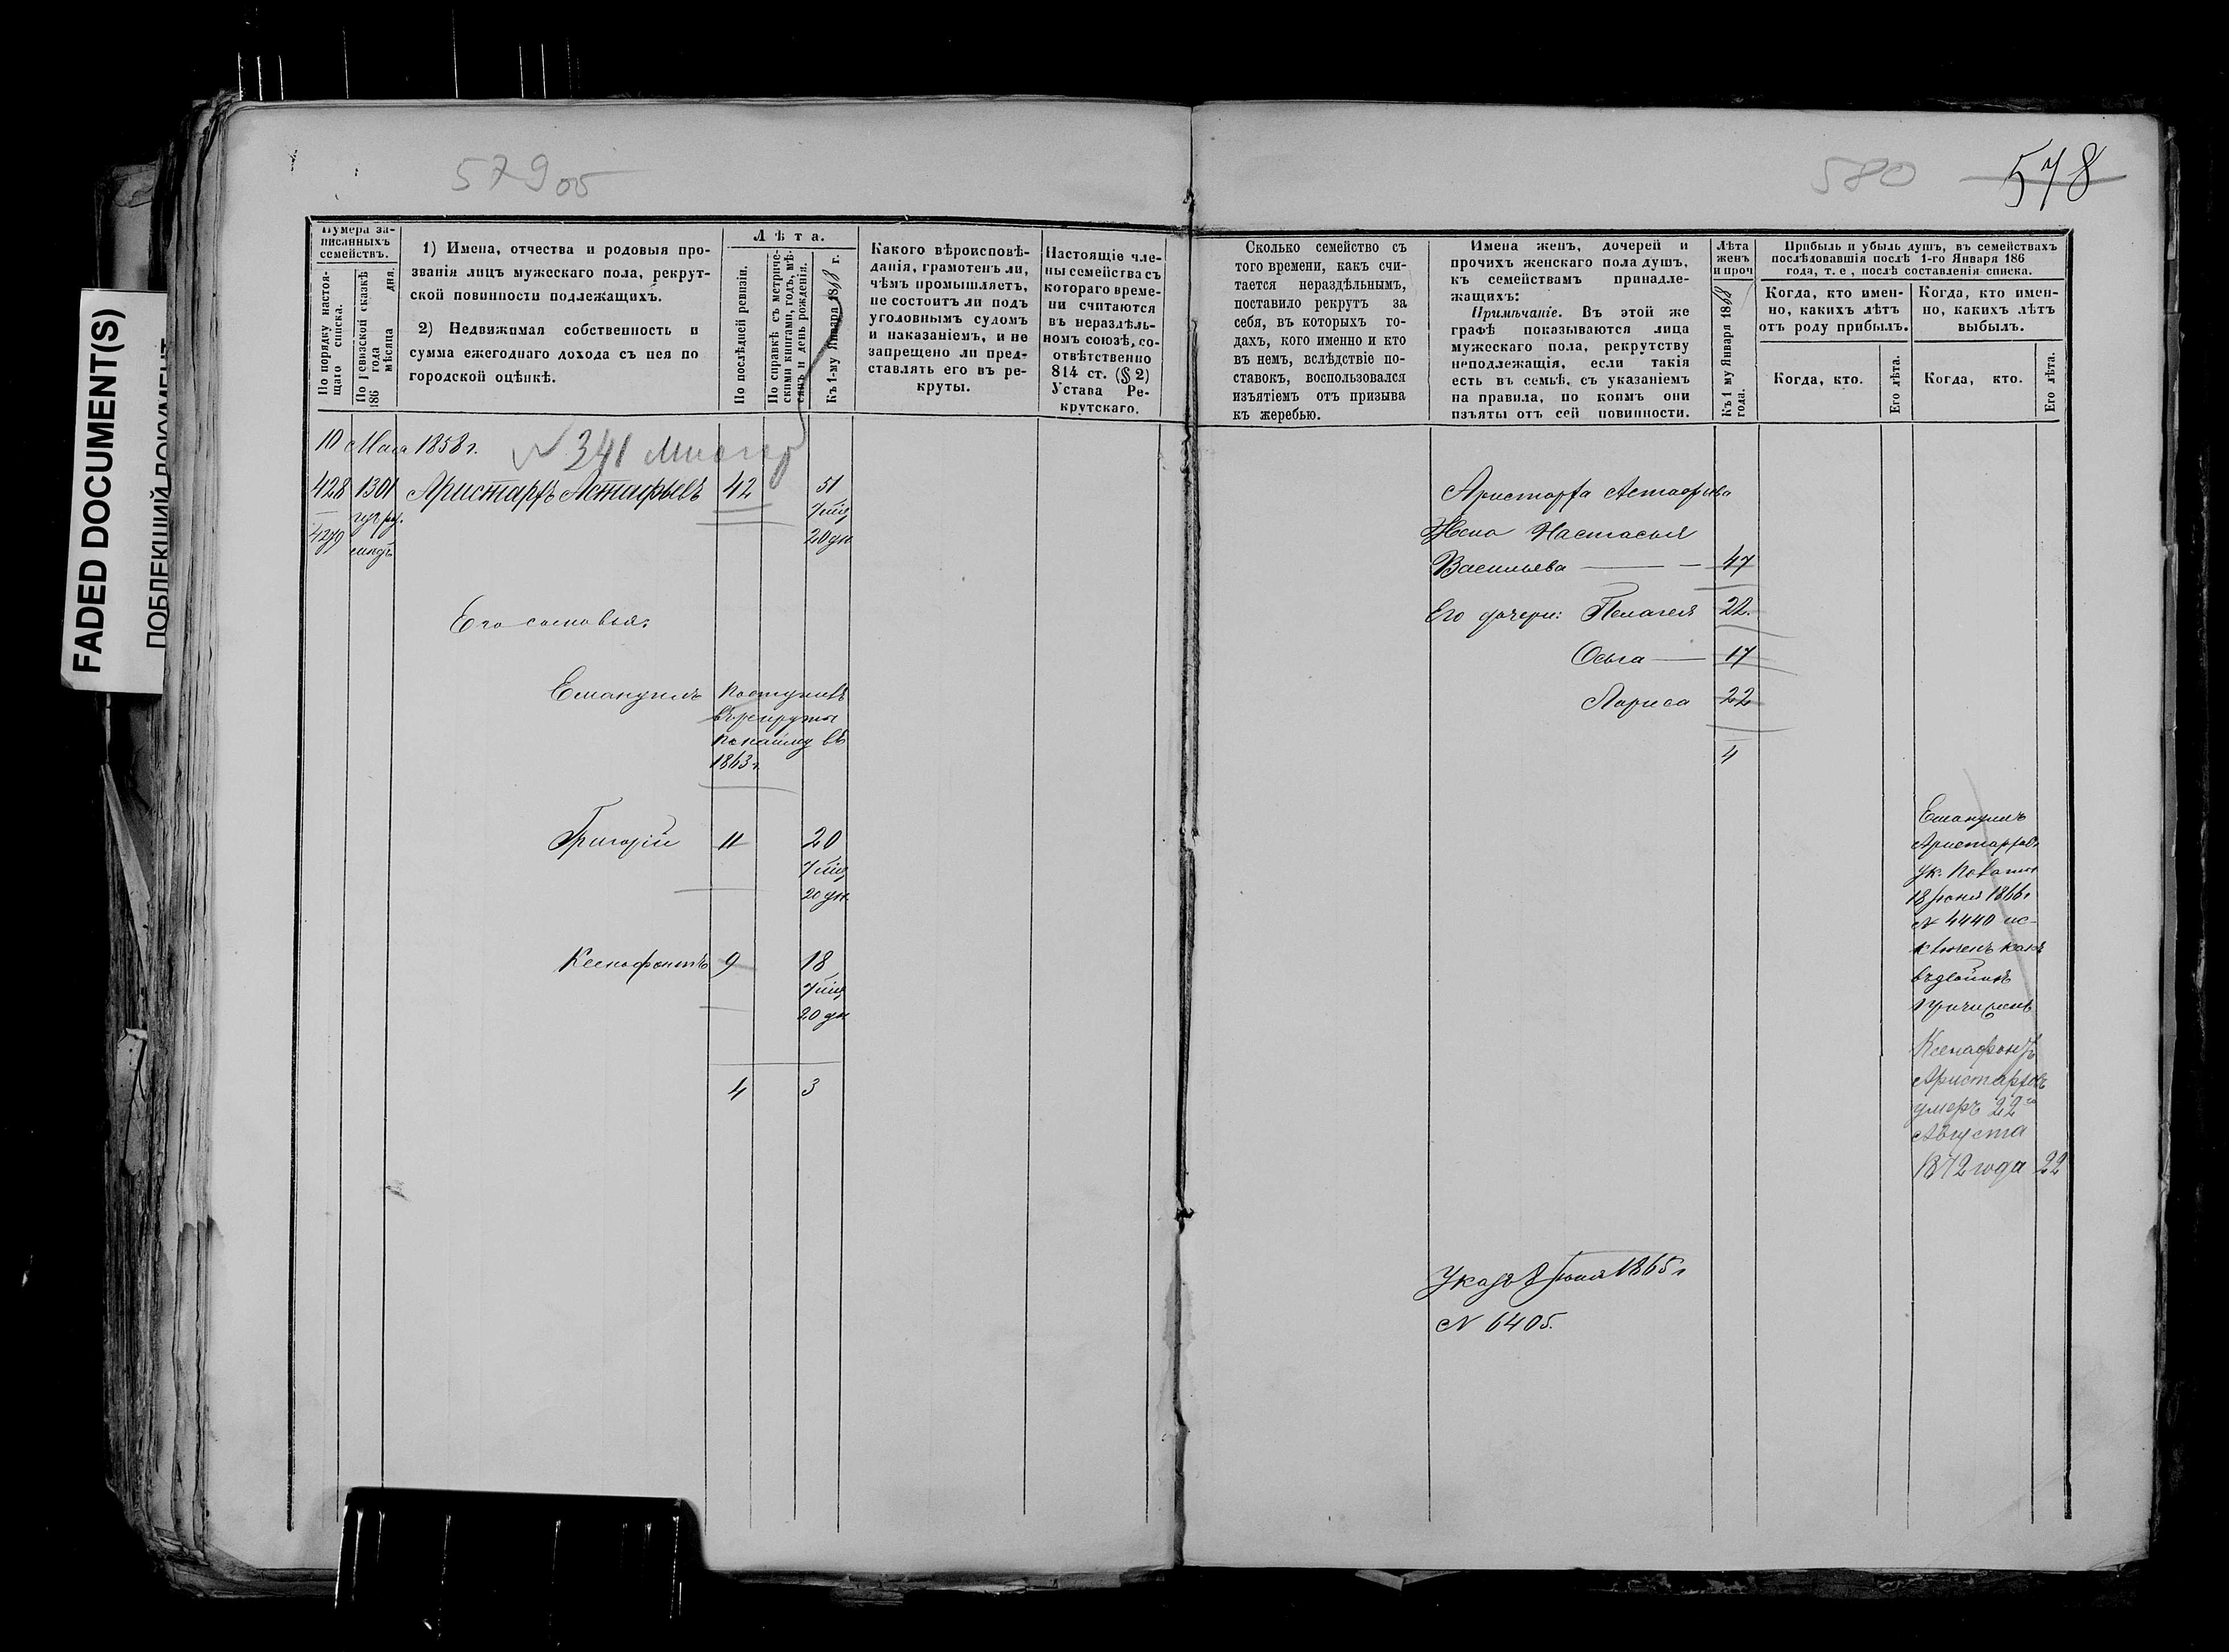 FADED DOCUMENT(S)
ПОБЛЕКШИЙ ДОКУМЕНТ
579об
Нумера за-
писанныхъ
семействъ.
По порядку настоя-
щаго списка.
По ревизской сказкѣ
186 года мѣсяца дня.
1) Имена, отчества и родовыя про-
званія лицъ мужескаго пола, рекрут-
ской повинности подлежащихъ.
2) Недвижимая собственность и
сумма ежегоднаго дохода съ нея по
городской оцѣнкѣ.
Лѣта.
По послѣдней ревизіи.
По справкѣ съ метриче-
скими книгами, годъ, мѣ-
сяцъ и день рожденія.
Къ 1-му Января 1868 г.
Какого вѣроисповѣ-
данія, грамотенъ ли,
чѣмъ промышляетъ,
не состоитъ ли подъ
уголовнымъ судомъ
и наказаніемъ, и не
запрещено ли пред-
ставлять его въ ре-
круты.
Настоящіе чле-
ны семейства съ
котораго време-
ни считаются
въ нераздѣль-
номъ союзѣ, со-
отвѣтственно
814 ст. (§ 2)
Устава Ре-
крутскаго.
10 Мая 1858 г.
№ 341
428 1301 Аристархъ Астафьевъ 42 51
7 мѣц
4279 20 дн
Его сыновья:
Емануилъ поступилъ
въ рекруты
по найму въ
1863 г.
Григорій 11 20
7 мѣц
20 дн.
Ксенофонтъ 9 18
7 мѣц
20 дн
4 3
580 578
Сколько семейство съ
того времени, какъ счи-
тается нераздѣльнымъ,
поставило рекрутъ за
себя, въ которыхъ го-
дахъ, кого именно и кто
въ немъ, вслѣдствіе по-
ставокъ, воспользовался
изъятіемъ отъ призыва
къ жеребью.
Имена женъ, дочерей и
прочихъ женскаго пола душъ,
къ семействамъ принадле-
жащихъ:
Примѣчаніе. Въ этой же
графѣ показываются лица
мужескаго пола, рекрутству
неподлежащія, если такія
есть въ семьѣ, съ указаніемъ
на правила, по коимъ они
изъяты отъ сей повинности.
Лѣта
женъ
и проч
Къ 1 му Января 1868
года.
Прибыль и убыль душъ, въ семействахъ
послѣдовавшія послѣ 1-го Января 186
года, т. е., послѣ составленія списка.
Когда, кто имен-
но, какихъ лѣтъ
отъ роду прибылъ.
Когда, кто.
Его лѣта.
Когда, кто имен-
но, какихъ лѣтъ
выбылъ.
Когда, кто.
Его лѣта.
Аристарха Астафьева
Жена Настасья
Васильева 47
Его дочери: Пелагея 22.
Ольга 17
Лариса 22
4
Указъ 8 Іюня 1865 г
№ 6405.
Емануилъ
Аристарховъ
ук. Палаты
18 Іюня 1866 г
№ 4440 ис-
ключенъ какъ
въ двойнѣ
причисленъ
Ксенофонтъ
Аристарховъ
умеръ 22го
Августа
1872 года 22